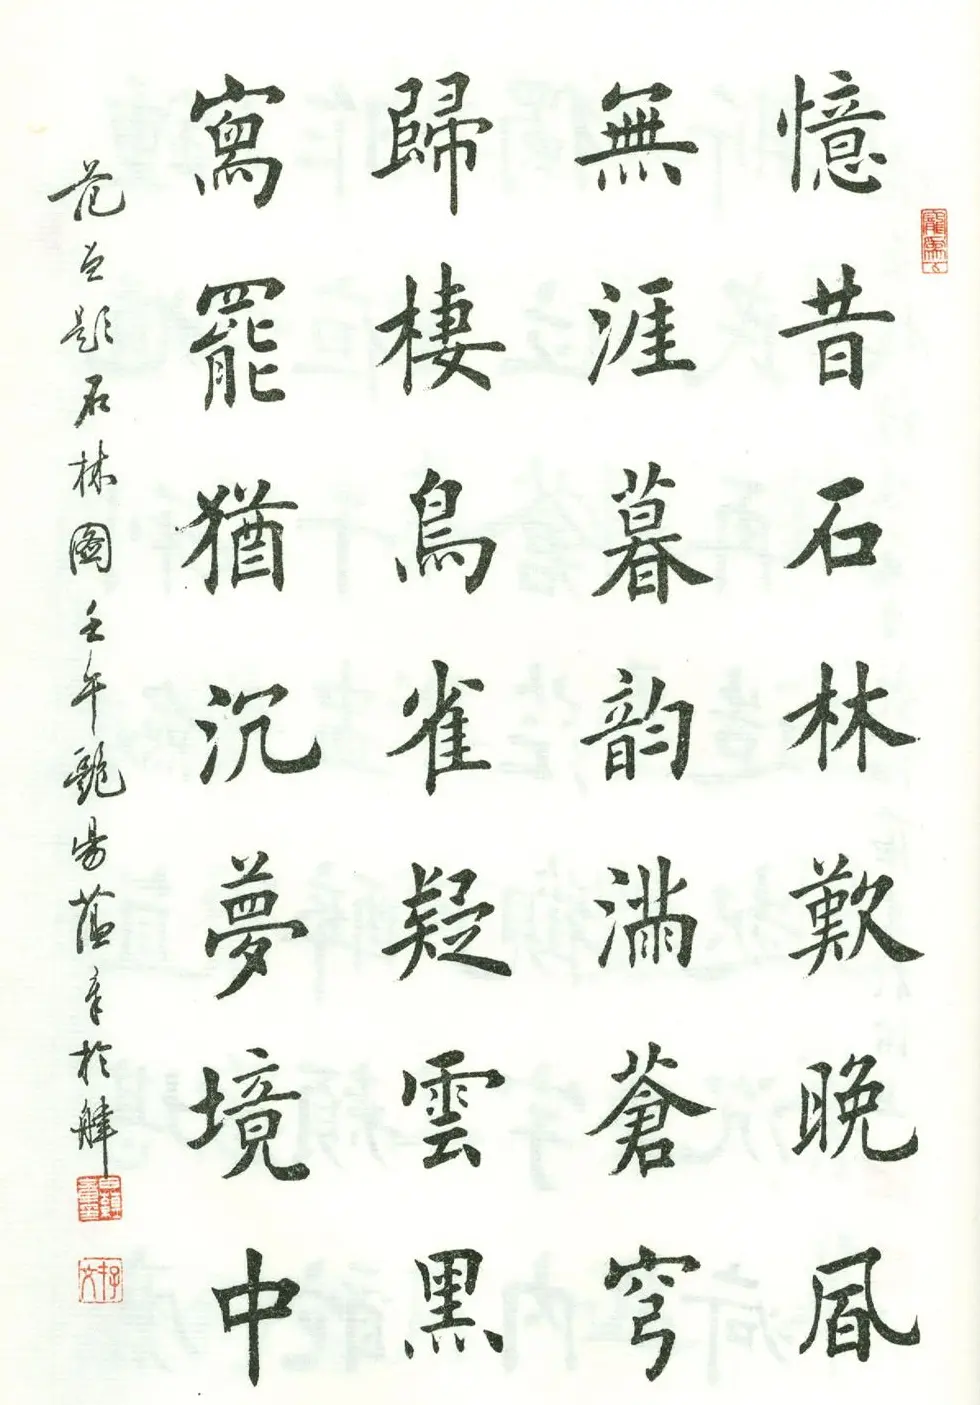 憶昔石林歎晚風
無涯暮韵滿蒼穹
歸棲鳥雀疑雲黑
寫罷猶沉夢境中
范曾題石林圖壬午艷陽 於